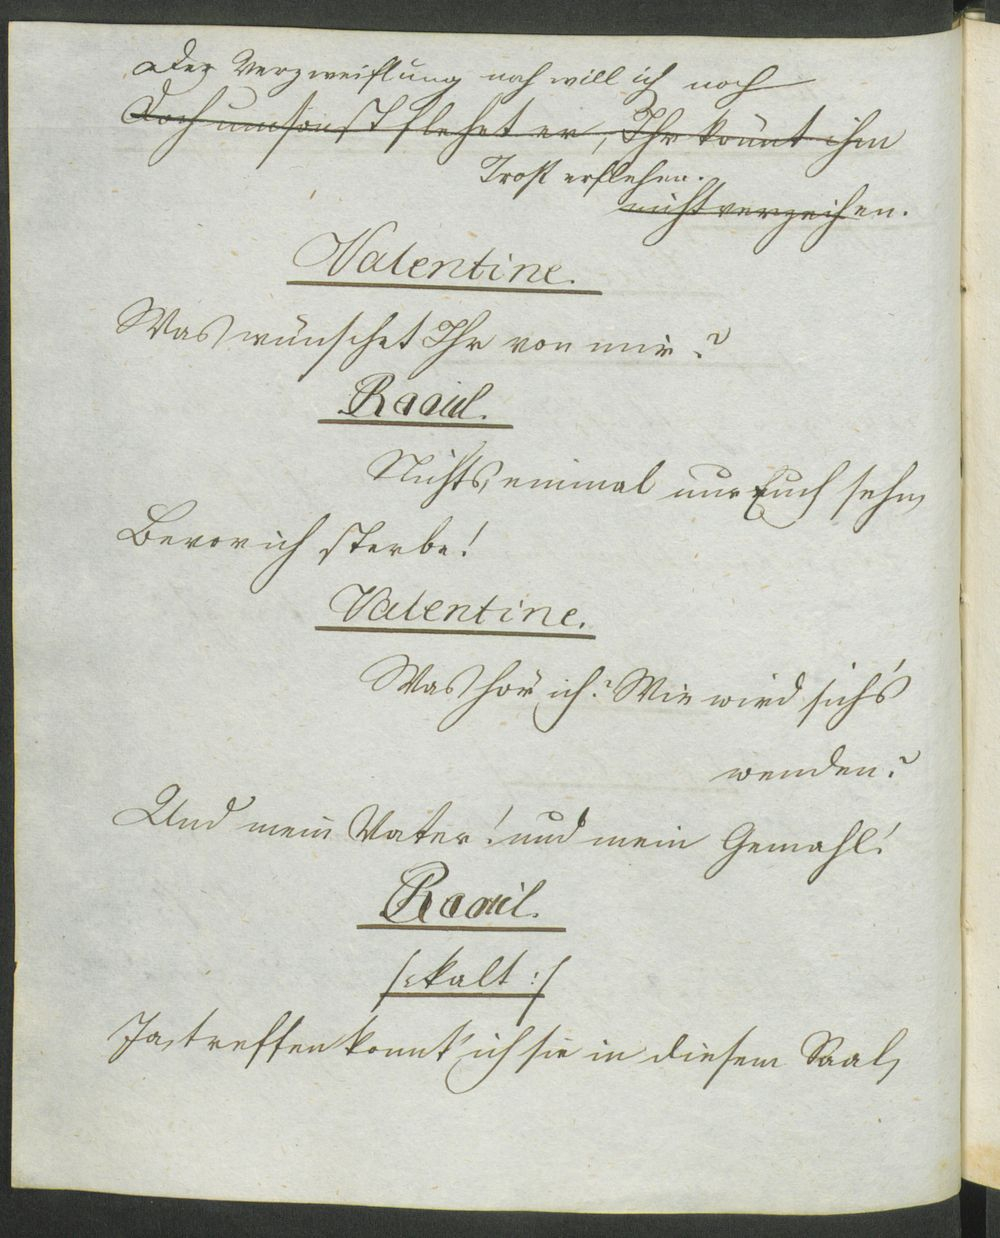 Der Verzweiflung noch will ich noch
Doch umsonst flehet er, Ihr könnt ihm
Trost erflehen.
nicht verzeihen.
Valentine.
Was wünschet Ihr von mir?
Raoul.
Nichts, einmal nur Euch sehn,
Bevor ich sterbe!
Valentine.
Was hör' ich? Wie wird sich's
wenden?
Und mein Vater! und mein Gemahl!
Raoul.
/: kalt :/
Ja, treffen konnt' ich sie in diesem Saal,